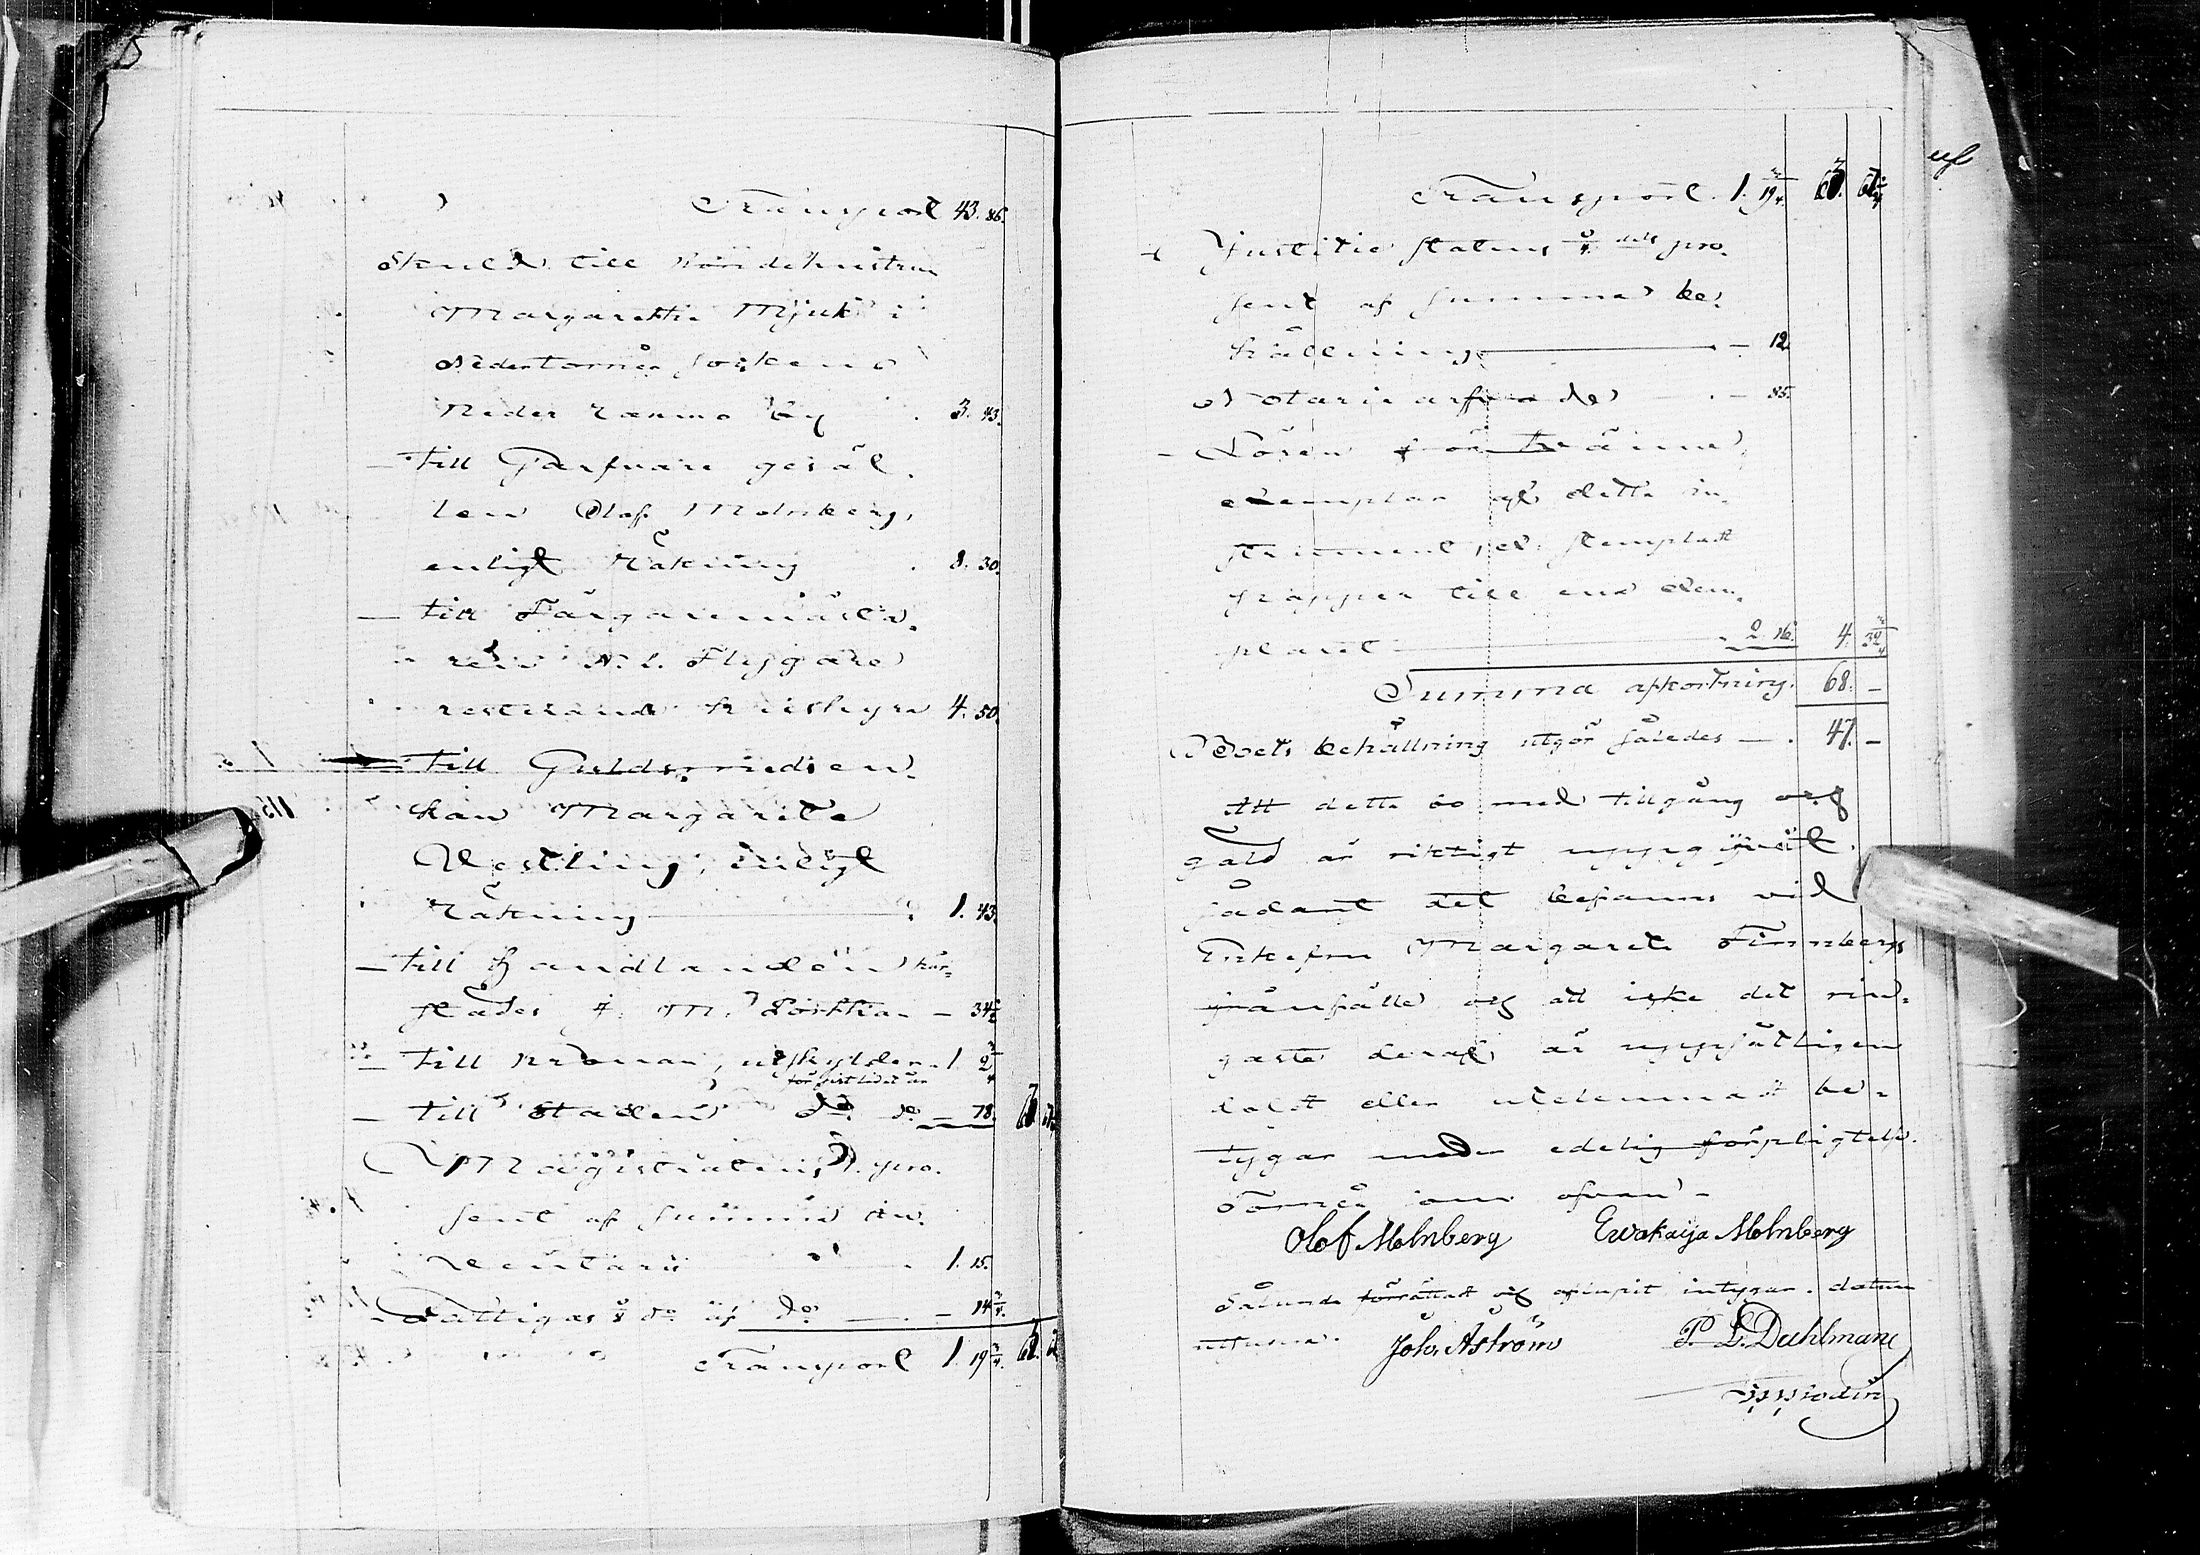 Transport 43. 86.
Skuld till Bondehustrun
Margaretha Mjuk i
Nedertorneå Socken o
Neder Wojakkala by . 3. 43.
— till Garfvare gesäl¬
len Olof Molnberg,
enligt Räkning . 8. 30.
— till Färgaremästa¬
ren N. L. Flyggare
resterande Huushyra 4. 50.
— till Guldsmedsen¬
kan Margareta
Westling, enligt
Räkning — 1. 43.
— till Handlanden här¬
städes — 34½
— till Kronan, utskylder 1. 2¾
för sistlidet år
— till Staden do do — 78. 67.
Magistratens 1. pro¬
sent af Summa In¬
ventarii — 1. 15.
Fattigas ⅛ do af do — 14¾.
Transport 1. 19¾. 63.
Transport. 1. 19¾. 63. 67¼
Justitie Statens ¼ dels pro¬
sent af Summa be¬
hållning — 12.
Notarie arfvode — 85.
Lösen för tvänne
exemplar af detta in¬
strument, och stemplat
papper till ena exem¬
plaret — 2. 16. 4. 32¾
Summa afkortning. 68. —
Boets behållning utgör således — . 47. —
Att detta bo med tillgång och
gäld är riktigt uppgifvit
sådant det befanns vid
Enkefru Margareta Finnbergs
frånfälle och att icke det rin¬
gaste deraf är uppsåtligen
doldt eller utelemnadt be¬
tygar under edelig förpligtelse.
Torneå som ofvan —
Olof Molnberg Ewakaijsa Molnberg
Sålunda författadt och afslutit, intygar. datum
utsupra. Joh. Åström P L. Dahlman